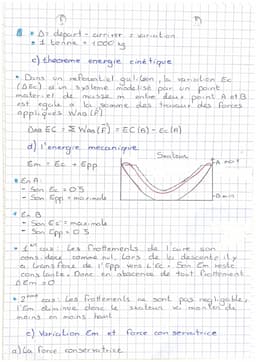 • Δ = départ - arriver = variation
• 1 tonne = 1000 kg
c) théorème energie cinétique
• Dans un referentiel galiléen, la variation Ec
(ΔEc) d'un système modelisé par un point
materiel de masse m entre deux point A et B
est egale a la somme des travaux des forces
appliqués WAB (F)
ΔAB EC = Σ WAB (F) = EC (B) - Ec (A)
d) l'energie mecanique
Em = Ec + Epp
Skateur
A
B
• En A:
- Son Ec = 0 J
- Son Epp = maximale
• En B
- Son Ec = maximale
- Son Epp = 0 J
• 1er cas: Les frottements de l'aire son
considéré comme nul. Lors de la descente il y
a transfère de l'Epp vers l'Ec. Son Em reste
constante. Donc en absence de tout frottement
ΔEm = 0
• 2ème cas: Les frottements ne sont pas negligable,
l'Em diminue donc le skateur va monter de
moins en moins haut
e) Variation Em et force conservatrice
a) La force conservatrice